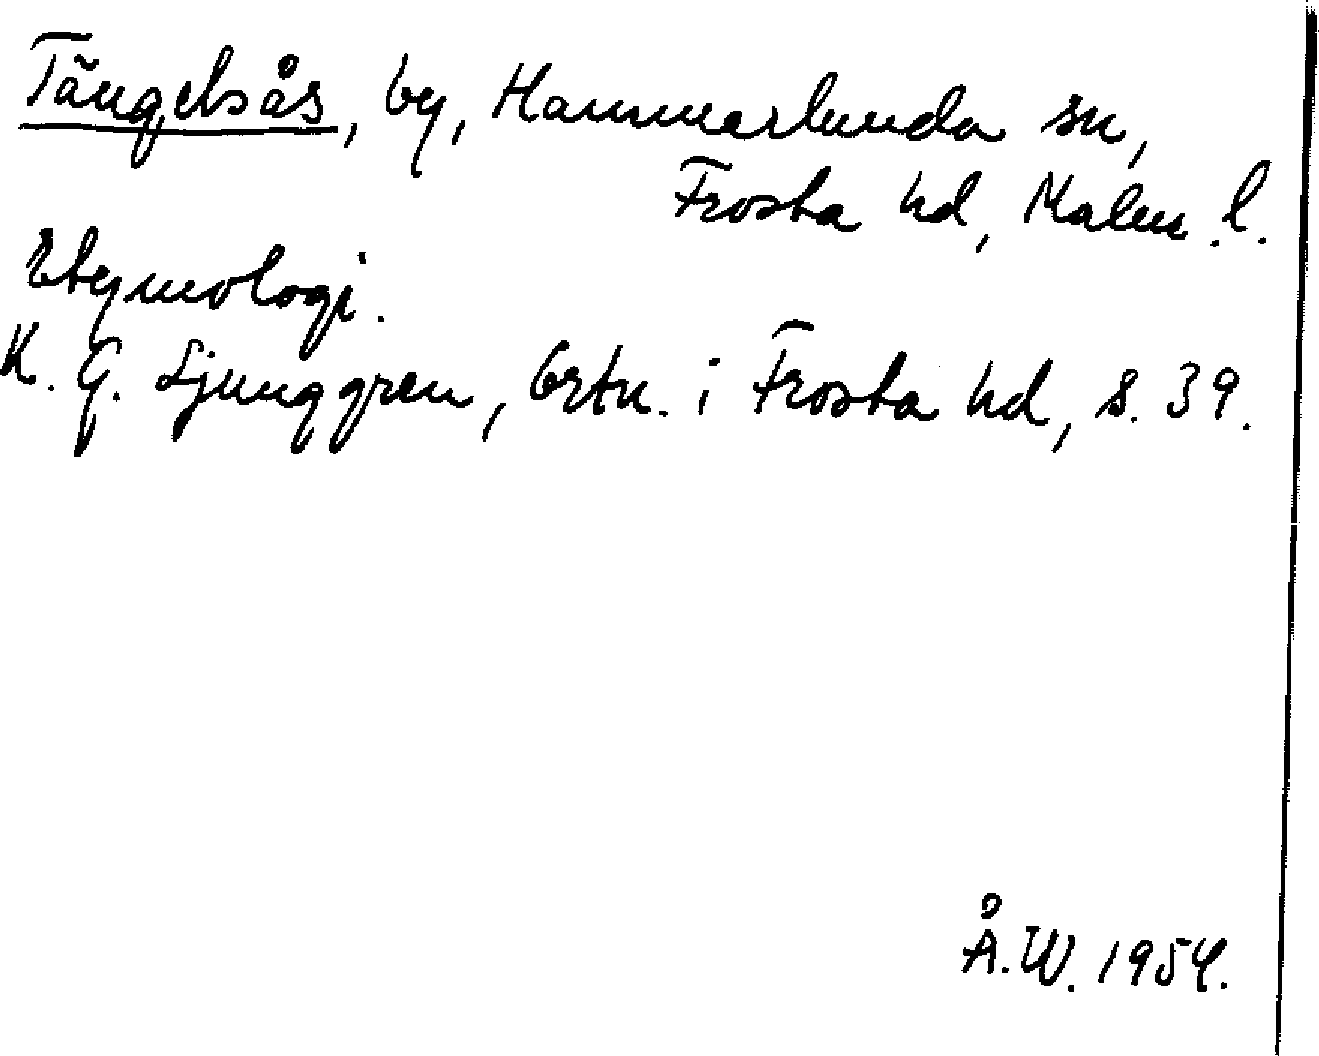 Tängelsås, by, Hammarlunda sn,
Frosta hd, Malm. l.
Etymologi.
K. G. Ljunggren, Ortn. i Frosta hd, s. 39.
Å.W. 1954.